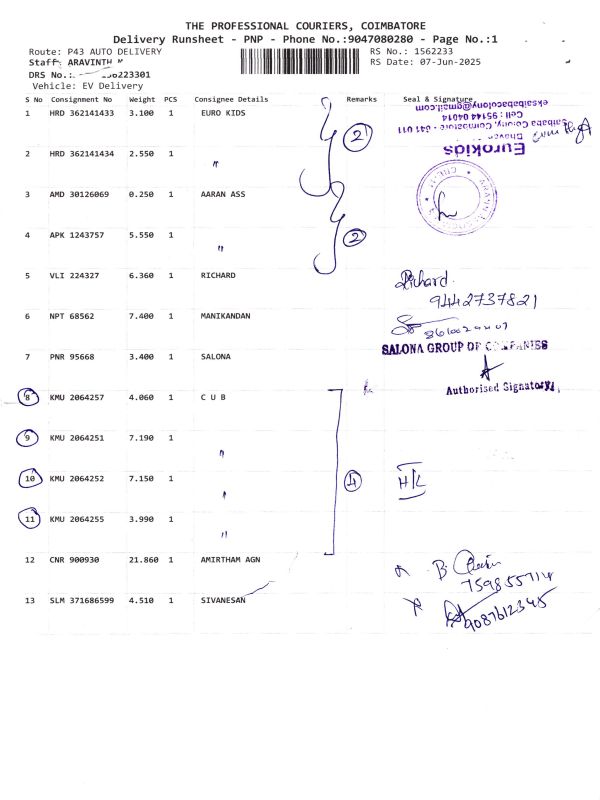 THE PROFESSIONAL COURIERS, COIMBATORE
Delivery Runsheet - PNP - Phone No.:9047080280 - Page No.:1
Route: P43 AUTO DELIVERY
RS No.: 1562233
Staff: ARAVINTH
RS Date: 07-Jun-2025
DRS No.: 223301
Vehicle: EV Delivery
S No Consignment No Weight PCS Consignee Details Remarks Seal & Signature
1 HRD 362141433 3.100 1 EURO KIDS
2
Eurokids
Saibaba Colony, Coimbatore - 641 011
Cell : 95144 04014
eksaibabacolony@gmail.com
2 HRD 362141434 2.550 1 "
3 AMD 30126069 0.250 1 AARAN ASS
4 APK 1243757 5.550 1 " 2
5 VLI 224327 6.360 1 RICHARD Richard
9442737821
6 NPT 68562 7.400 1 MANIKANDAN
7 PNR 95668 3.400 1 SALONA SALONA GROUP OF COMPANIES
Authorised Signatory
8 KMU 2064257 4.060 1 C U B
9 KMU 2064251 7.190 1 "
10 KMU 2064252 7.150 1 " 4 H/L
11 KMU 2064255 3.990 1 "
12 CNR 900930 21.860 1 AMIRTHAM AGN B.
13 SLM 371686599 4.510 1 SIVANESAN
9087612345